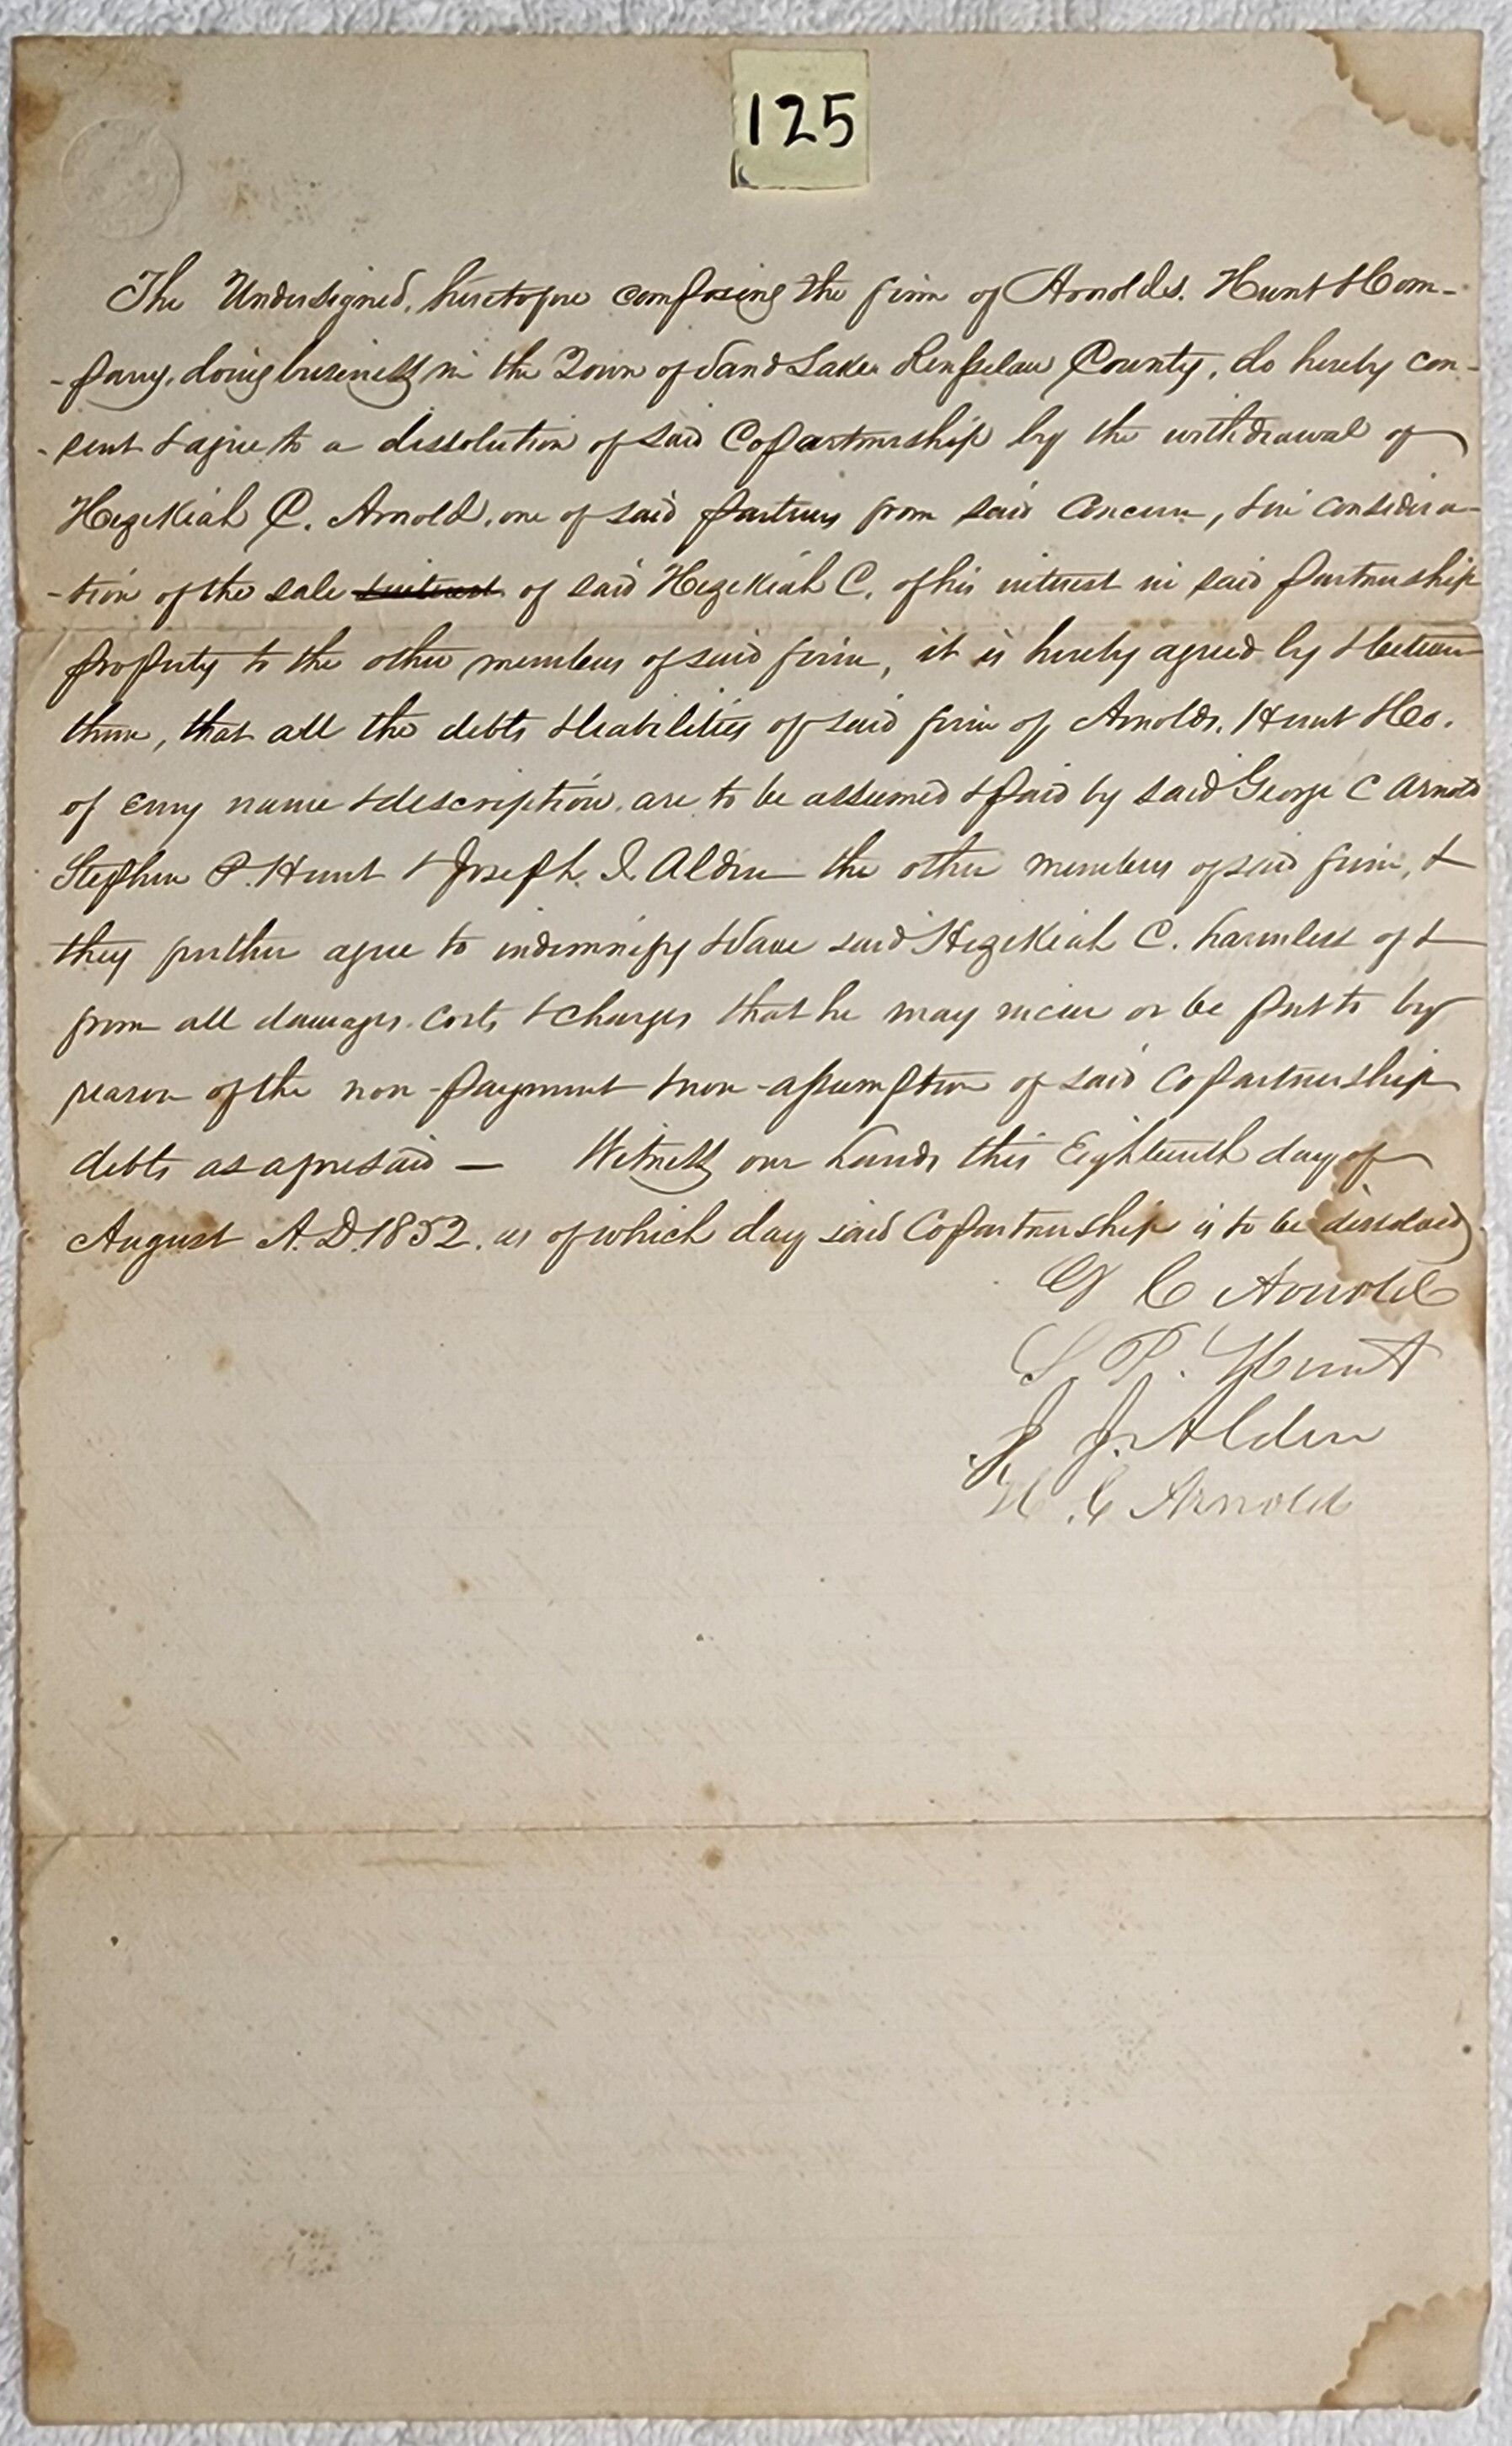 125
The Undersigned, heretofore composing the firm of Arnolds, Hunt & Com-
-pany, doing business in the Town of Sand Lake Rensselaer County, do hereby con-
-sent & agree to a dissolution of said Copartnership by the withdrawal of
Hezekiah C. Arnold, one of said partners from said Concern, & in considera-
-tion of the sale & interest of said Hezekiah C. of his interest in said partnership
property to the other members of said firm, it is hereby agreed by & between
them, that all the debts & liabilities of said firm of Arnolds, Hunt & Co.
of every name & description, are to be assumed & paid by said George C Arnold
Stephen P. Hunt & Joseph J. Alden the other members of said firm, &
they further agree to indemnify & save said Hezekiah C. harmless of &
from all damages, costs & charges that he may incur or be put to by
reason of the non-payment & non-assumption of said Copartnership
debts as aforesaid — Witness our hands this Eighteenth day of
August A.D. 1852, as of which day said Copartnership is to be dissolved
G C Arnold
S P. Hunt
J J. Alden
H. C Arnold